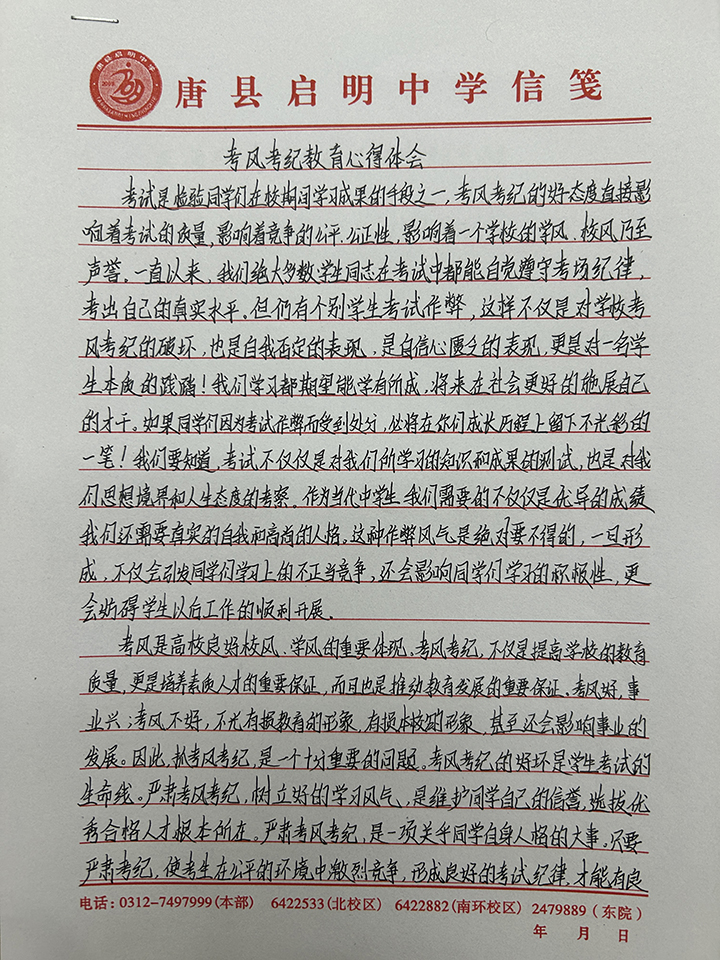 唐县启明中学信笺
考风考纪教育心得体会
考试是检验同学们在校期间学习成果的手段之一，考风考纪的好态度直接影
响着考试的质量，影响着竞争的公平、公正性，影响着一个学校的学风、校风乃至
声誉。一直以来，我们绝大多数学生同志在考试中都能自觉遵守考场纪律，
考出自己的真实水平。但仍有个别学生考试作弊，这样不仅是对学校考
风考纪的破坏，也是自我否定的表现，是自信心匮乏的表现，更是对一名学
生本质的践踏！我们学习都期望能学有所成，将来在社会更好的施展自己
的才干。如果同学们因为考试作弊而受到处分，必将在你们成长历程上留下不光彩的
一笔！我们要知道，考试不仅仅是对我们所学习的知识和成果的测试，也是对我
们思想境界和人生态度的考察。作为当代中学生，我们需要的不仅仅是优异的成绩
我们还需要真实的自我和高尚的人格。这种作弊风气是绝对要不得的，一旦形
成，不仅会引发同学们学习上的不正当竞争，还会影响同学们学习的积极性，更
会妨碍学生以后工作的顺利开展。
考风是高校良好校风、学风的重要体现。考风考纪，不仅是提高学校的教育
质量，更是培养素质人才的重要保证，而且也是推动教育发展的重要保证。考风好，事
业兴；考风不好，不光有损教育的形象，有损本校的形象，甚至还会影响事业的
发展。因此，抓考风考纪，是一个十分重要的问题。考风考纪的好坏是学生考试的
生命线。严肃考风考纪，树立好的学习风气，是维护同学自己的信誉，选拔优
秀合格人才根本所在。严肃考风考纪，是一项关乎同学自身人格的大事。只要
严肃考纪，使考生在公平的环境中激烈竞争，形成良好的考试纪律，才能有良
电话：0312-7497999(本部) 6422533(北校区) 6422882(南环校区) 2479889（东院）
年 月 日